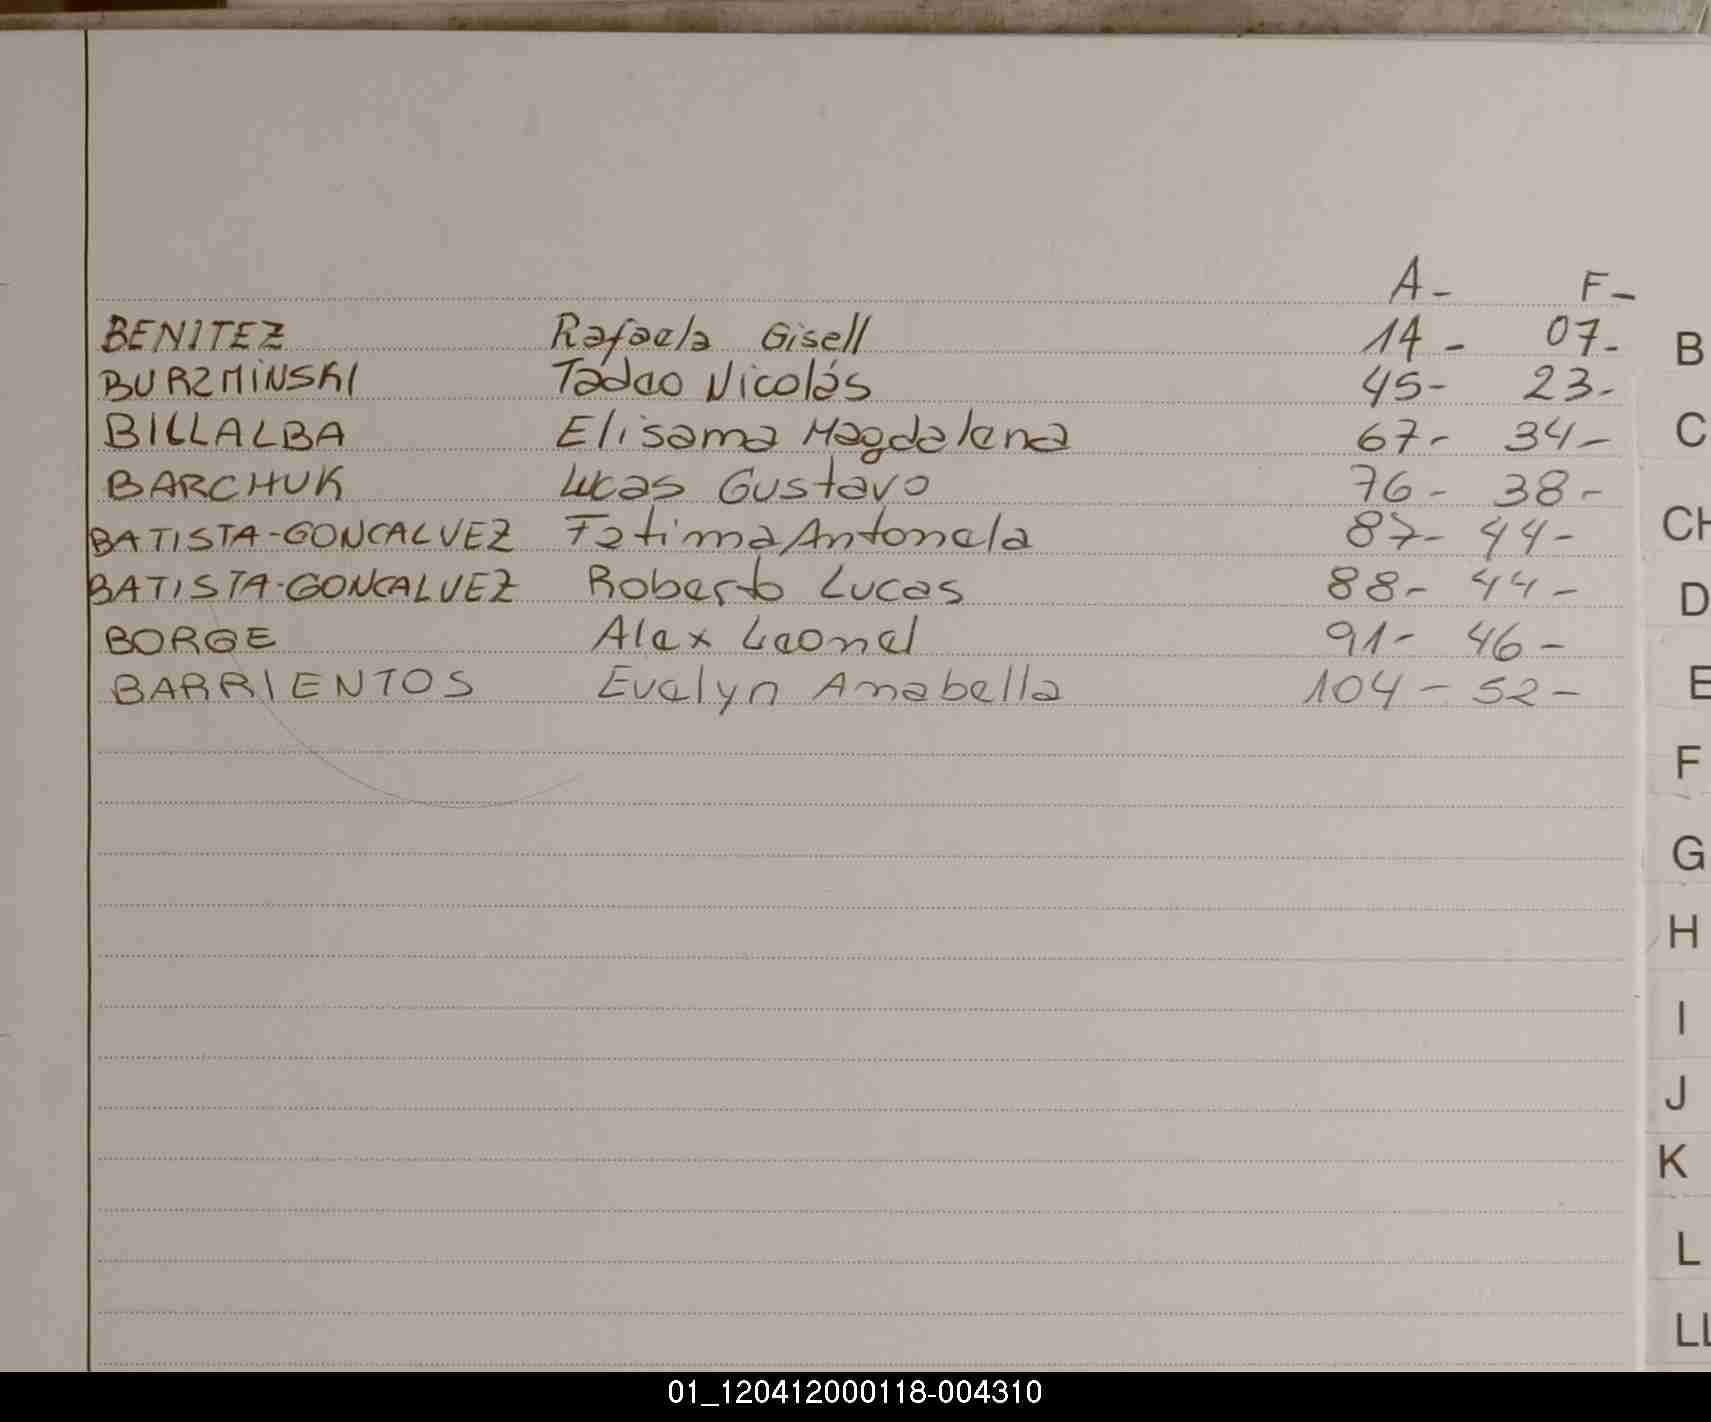 A- F-
BENITEZ Rafaela Gisell 14- 07- B
BURZMINSKI Tadeo Nicolás 45- 23-
BILLALBA Elisama Magdalena 67- 34- C
BARCHUK Lucas Gustavo 76- 38-
BATISTA-GONCALVEZ Fatima Antonela 87- 44- CH
BATISTA-GONCALVEZ Roberto Lucas 88- 44- D
BORGE Alex Leonel 91- 46-
BARRIENTOS Evelyn Anabella 104- 52- E
F
G
H
I
J
K
L
LL
01_120412000118-004310